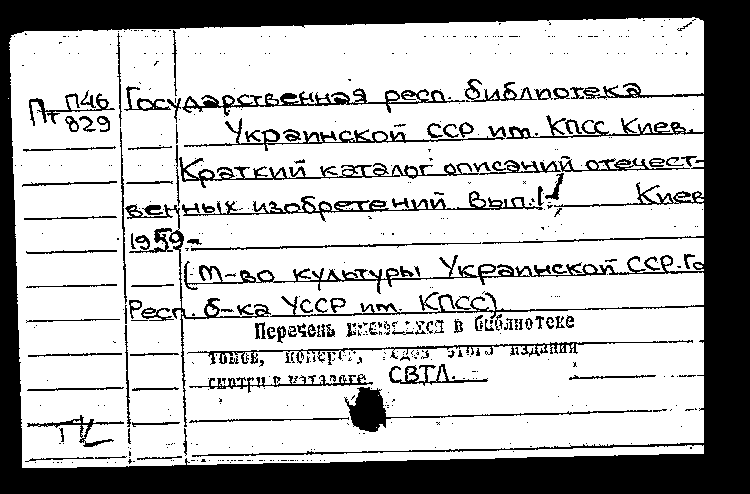 Пт П46 Государственная респ. библиотека
829 Украинской ССР им. КПСС Киев.
Краткий каталог описаний отечест-
венных изобретений Вып. 1- Киев
1959-
(М-во культуры Украинской ССР. Го
Респ. б-ка УССР им. КПСС)
Перечень имеющихся в библиотеке
томов, номеров, годов этого издания
смотри в каталоге СВТЛ.